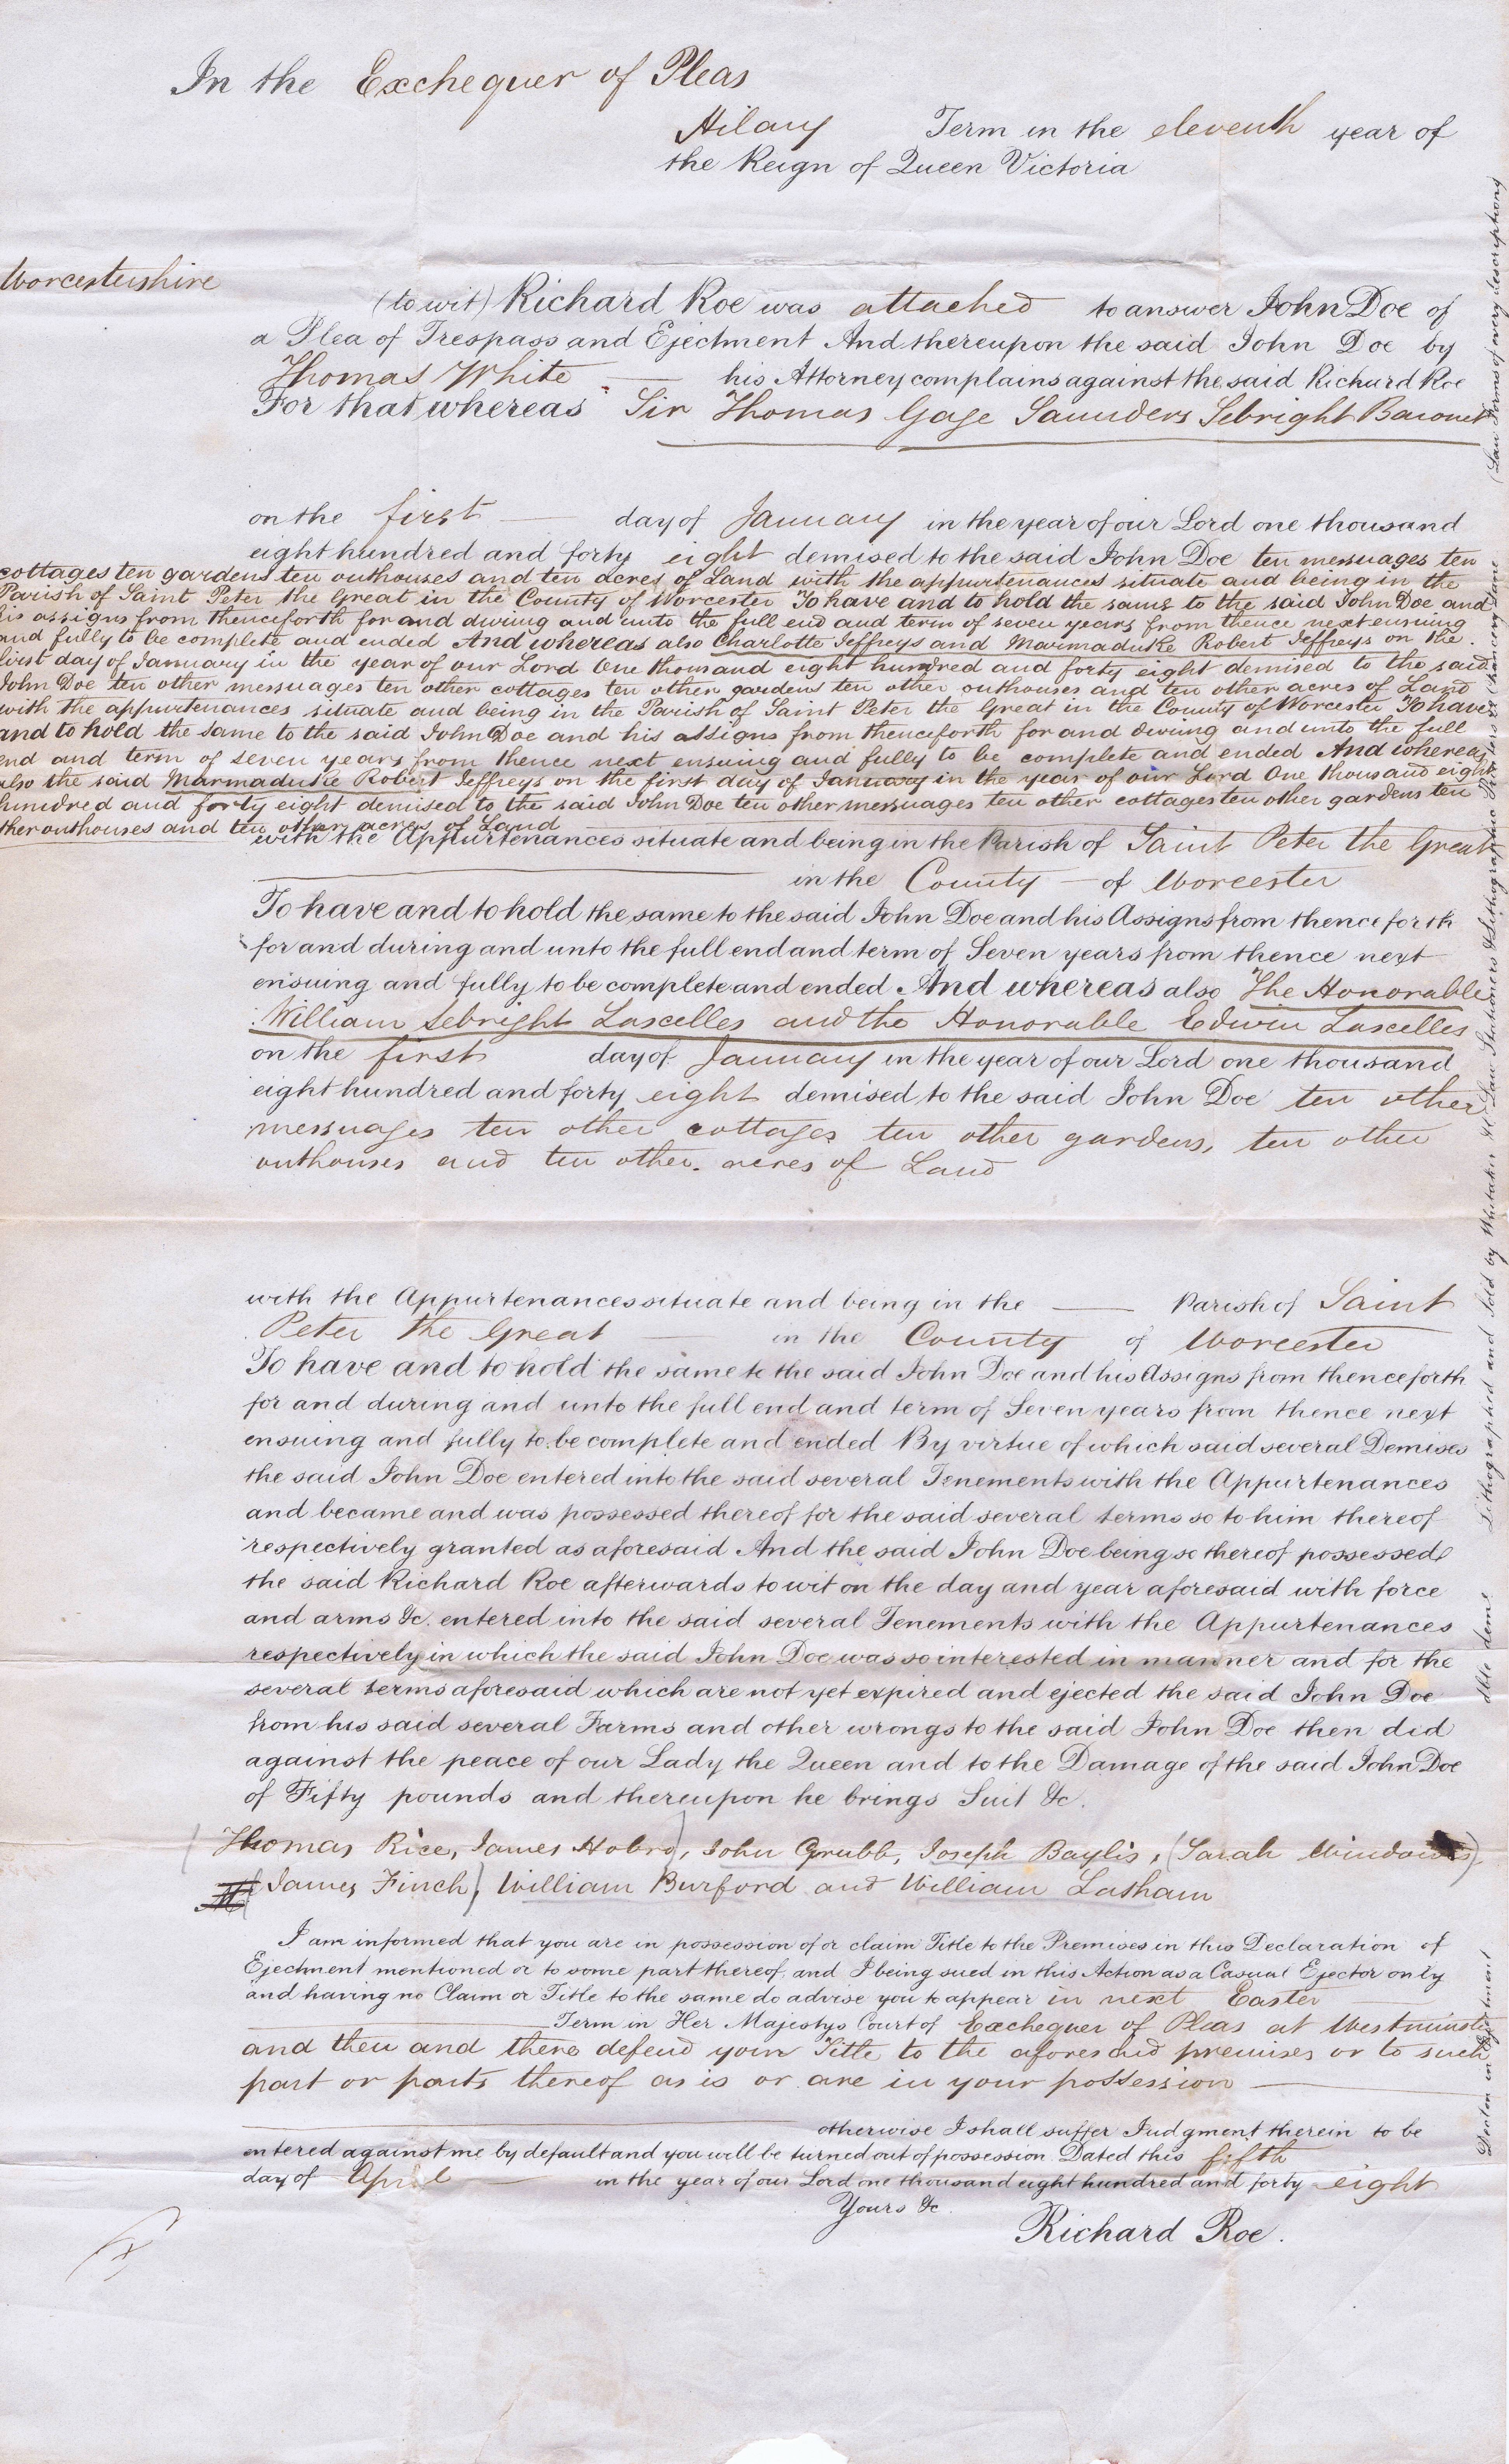 In the Exchequer of Pleas
Hilary Term in the eleventh year of
the Reign of Queen Victoria
Worcestershire
(to wit) Richard Roe was attached to answer John Doe of
a Plea of Trespass and Ejectment And thereupon the said John Doe by
Thomas White his Attorney complains against the said Richard Roe
For that whereas Sir Thomas Gage Saunders Sebright Baronet
on the first day of January in the year of our Lord one thousand
eight hundred and forty eight demised to the said John Doe ten messuages ten
cottages ten gardens ten outhouses and ten acres of Land with the appurtenances situate and being in the
Parish of Saint Peter the Great in the County of Worcester To have and to hold the same to the said John Doe and
his assigns from thenceforth for and during and unto the full end and term of seven years from thence next ensuing
and fully to be complete and ended And whereas also Charlotte Jeffreys and Marmaduke Robert Jeffreys on the
first day of January in the year of our Lord One thousand eight hundred and forty eight demised to the said
John Doe ten other messuages ten other cottages ten other gardens ten other outhouses and ten other acres of Land
with the appurtenances situate and being in the Parish of Saint Peter the Great in the County of Worcester To have
and to hold the same to the said John Doe and his assigns from thenceforth for and during and unto the full
end and term of seven years from thence next ensuing and fully to be complete and ended And whereas
also the said Marmaduke Robert Jeffreys on the first day of January in the year of our Lord One thousand eight
hundred and forty eight demised to the said John Doe ten other messuages ten other cottages ten other gardens ten
other outhouses and ten other acres of Land
with the Appurtenances situate and being in the Parish of Saint Peter the Great
in the County of Worcester
To have and to hold the same to the said John Doe and his Assigns from thenceforth
for and during and unto the full end and term of Seven years from thence next
ensuing and fully to be complete and ended And whereas also The Honorable
William Sebright Lascelles and the Honorable Edwin Lascelles
on the first day of January in the year of our Lord one thousand
eight hundred and forty eight demised to the said John Doe ten other
messuages ten other cottages ten other gardens, ten other
outhouses and ten other acres of Land
with the Appurtenances situate and being in the Parish of Saint
Peter the Great in the County of Worcester
To have and to hold the same to the said John Doe and his Assigns from thenceforth
for and during and unto the full end and term of Seven years from thence next
ensuing and fully to be complete and ended By virtue of which said several Demises
the said John Doe entered into the said several Tenements with the Appurtenances
and became and was possessed thereof for the said several terms so to him thereof
respectively granted as aforesaid And the said John Doe being so thereof possessed
the said Richard Roe afterwards to wit on the day and year aforesaid with force
and arms &c. entered into the said several Tenements with the Appurtenances
respectively in which the said John Doe was so interested in manner and for the
several terms aforesaid which are not yet expired and ejected the said John Doe
from his said several Farms and other wrongs to the said John Doe then did
against the peace of our Lady the Queen and to the Damage of the said John Doe
of Fifty pounds and thereupon he brings Suit &c.
(Thomas Rice, James Hobro), John Grubb, Joseph Baylis, (Sarah
James Finch) William Burford and William Lasham
I am informed that you are in possession of or claim Title to the Premises in this Declaration of
Ejectment mentioned or to some part thereof, and I being sued in this Action as a Casual Ejector only
and having no Claim or Title to the same do advise you to appear in next Easter
Term in Her Majestys Court of Exchequer of Pleas at Westminster
and then and there defend your Title to the aforesaid premises or to such
part or parts thereof as is or are in your possession
otherwise I shall suffer Judgment therein to be
entered against me by default and you will be turned out of possession. Dated this fifth
day of April in the year of our Lord one thousand eight hundred and forty eight
Yours &c.
Richard Roe.
Decln in Ejectment
dble demse
Lithographed and Sold by Whitaker & Co Law Stationers & Lithographic Printers
(Law Forms of every description)